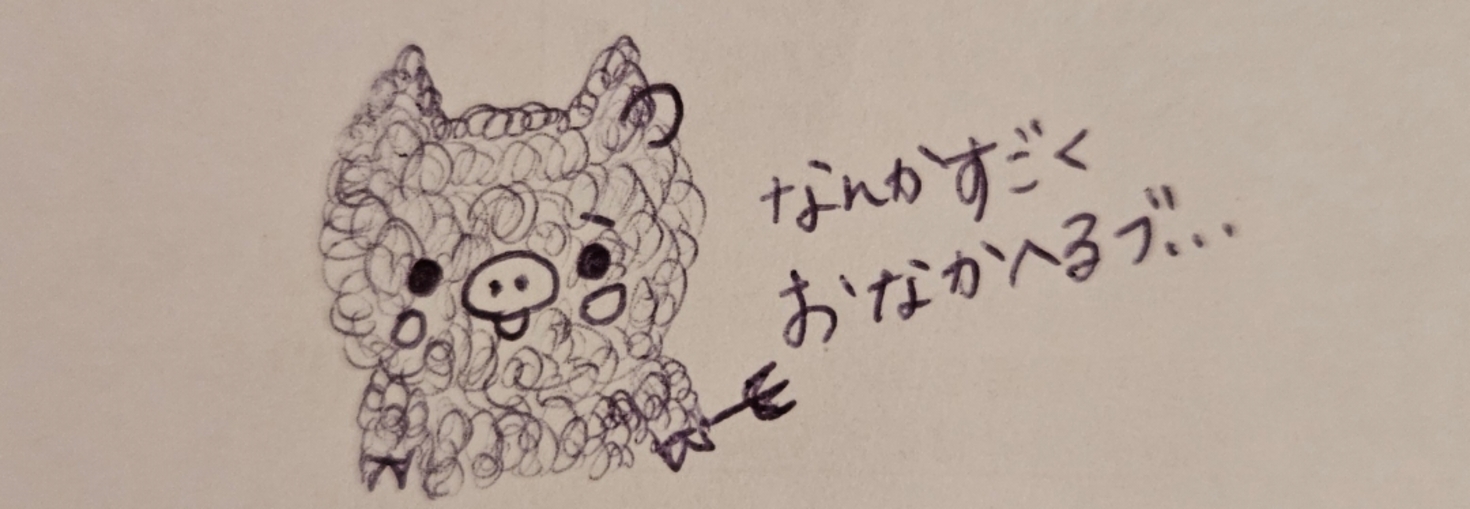 なんかすごく
おなかへるブ...